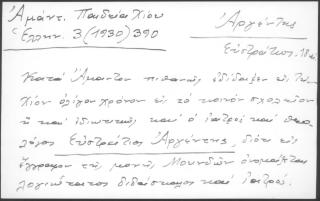 Ἀμάντ. Παιδεία Χίου
Ἑλλην. 3 (1930) 390
Ἀργέντης
Εὐστράτιος 18 αἰ
Κατὰ Ἄμαντον πιθανῶς ἐδίδαξεν εἰς τὴν
Χίον ὀλίγον χρόνον εἰς τὸ κοινὸν σχολεῖον
ἢ καὶ ἰδιωτικῶς καὶ ὁ ἰατρὸς καὶ θεο
λόγος Εὐστράτιος Ἀργέντης, διότι εἰς
ἔγγραφον τῆς μονῆς Μουνδῶν ὀνομάζεται
λογιώτατος διδάσκαλος καὶ ἰατρός.